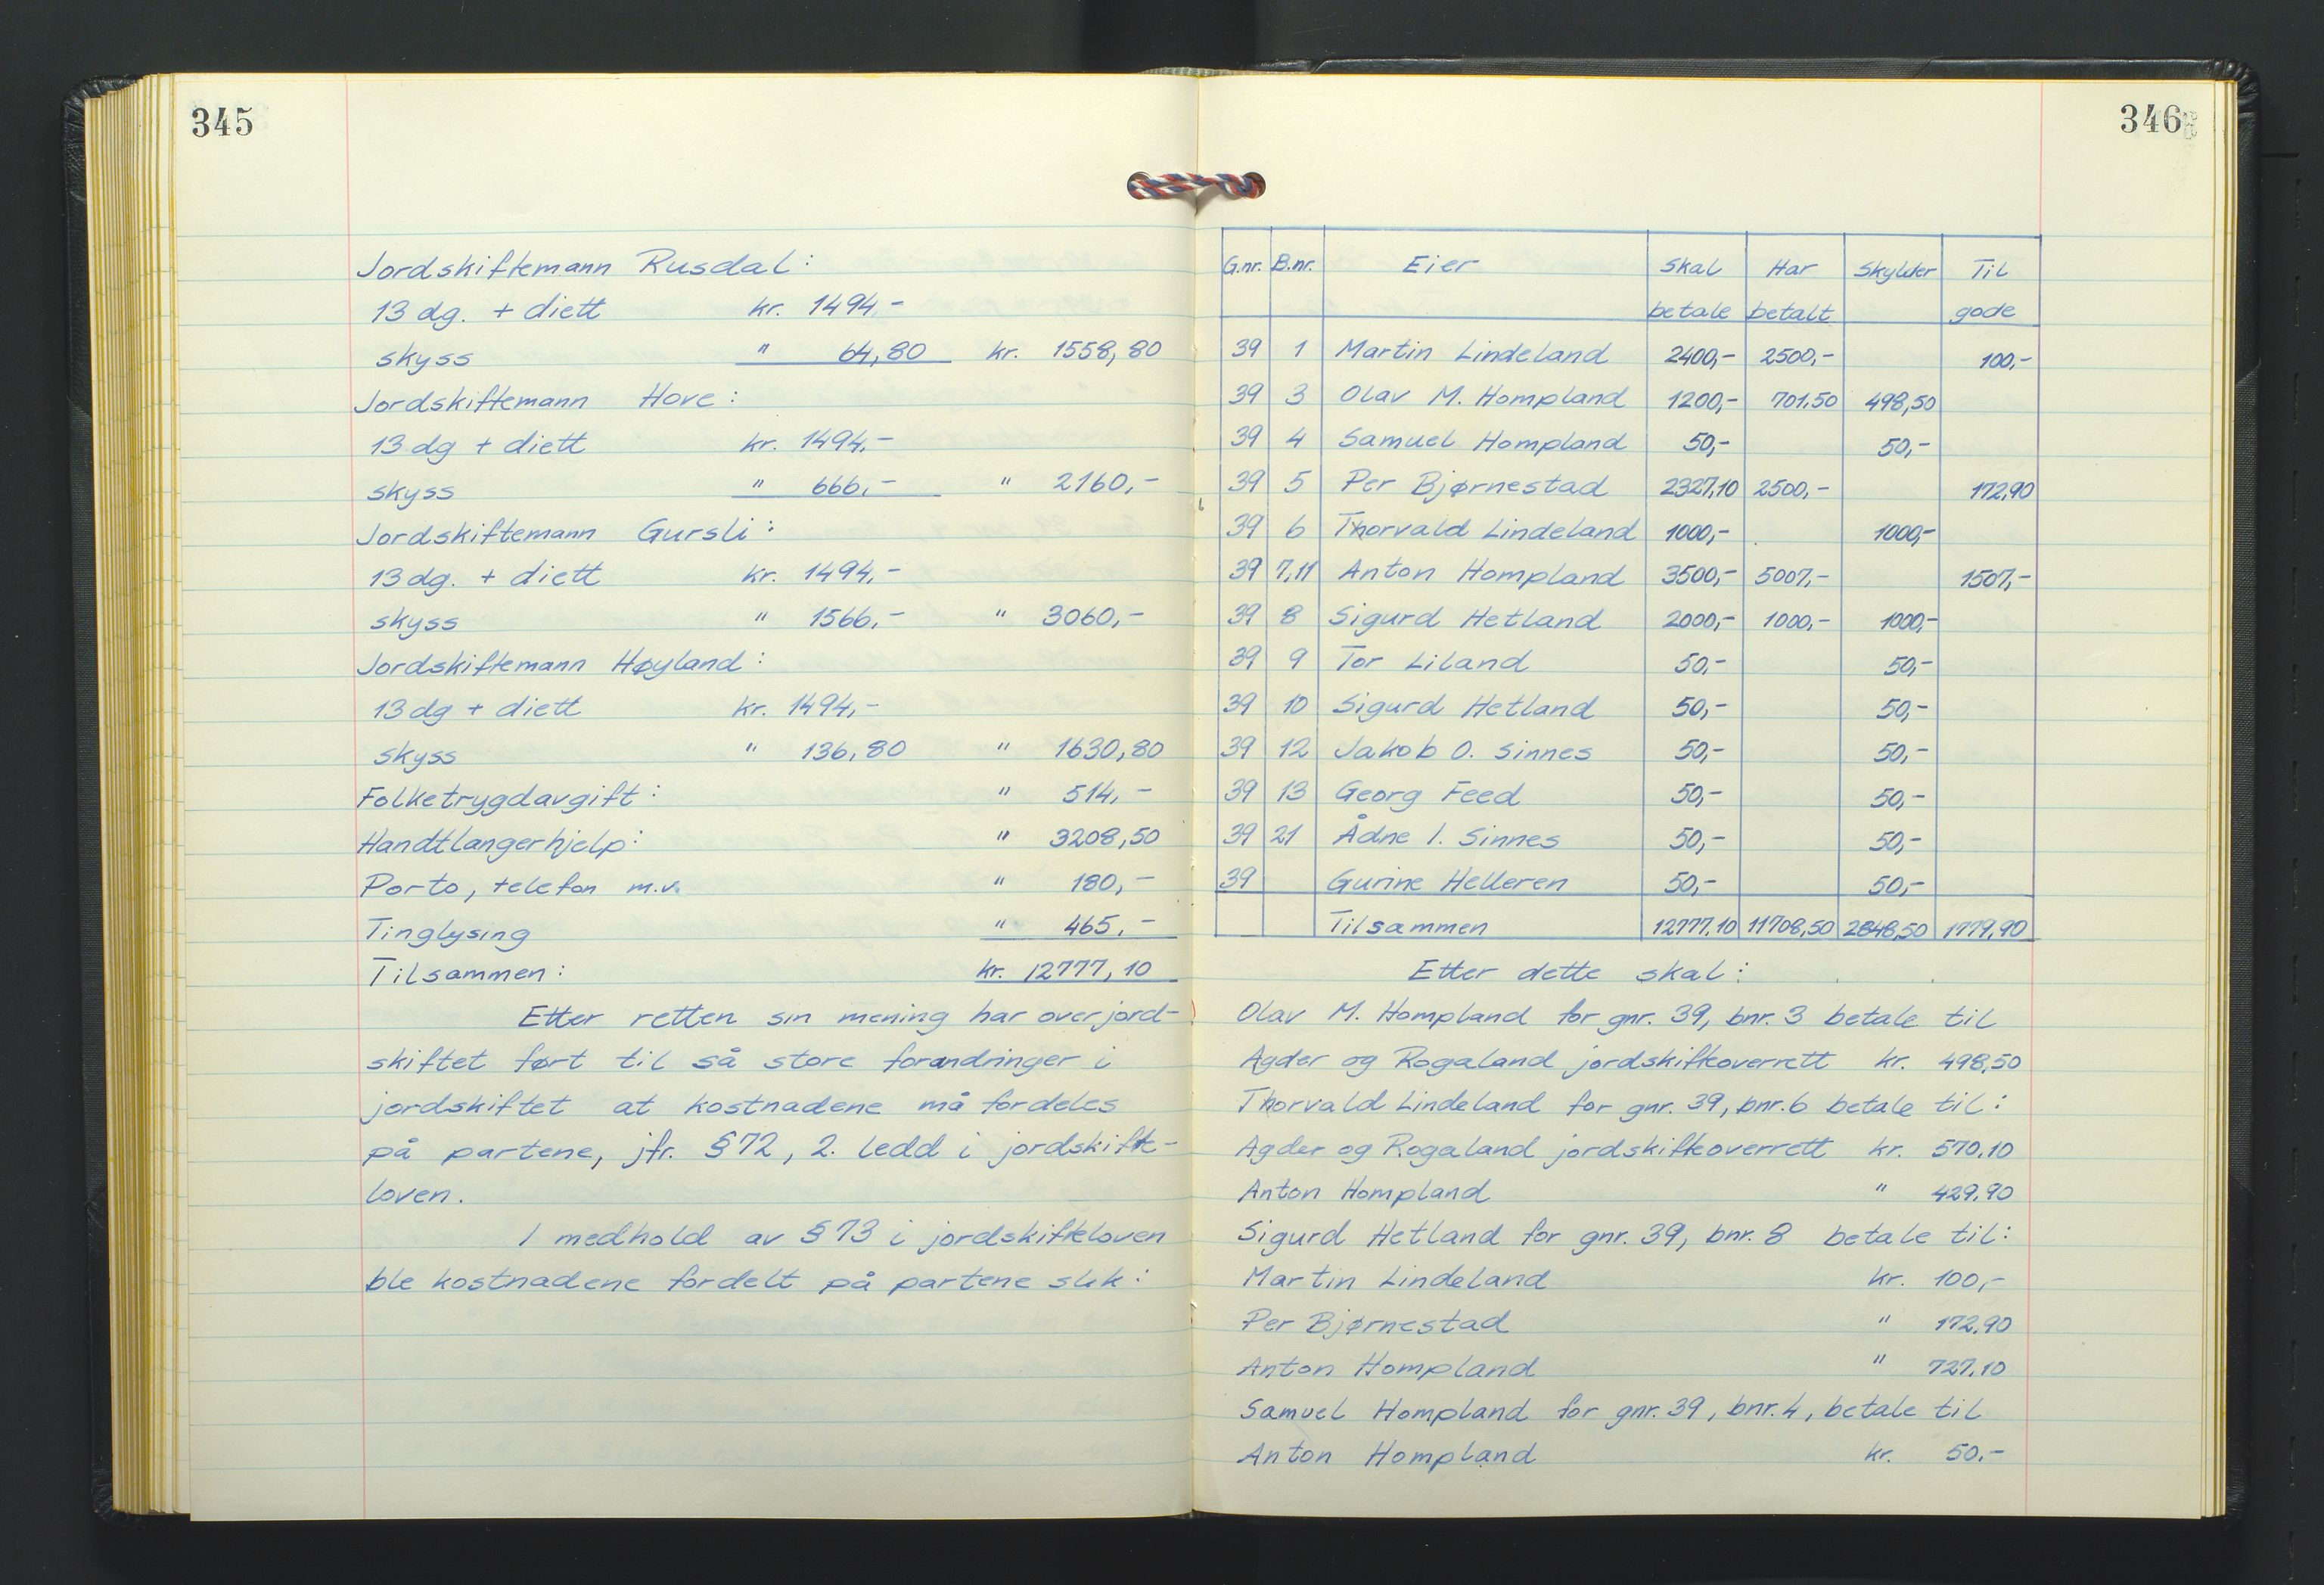 345
Jordskiftemann Rusdal:
13 dg. + diett kr. 1494,-
skyss " 64,80 kr. 1558,80
Jordskiftemann Hove:
13 dg + diett kr. 1494,-
skyss " 666,- " 2160,-
Jordskiftemann Gursli:
13 dg. + diett kr. 1494,-
skyss " 1566,- " 3060,-
Jordskiftemann Høyland:
13 dg + diett kr. 1494,-
skyss " 136,80 " 1630,80
Folketrygdavgift: " 514,-
Handtlangerhjelp: " 3208,50
Porto, telefon m.v. " 180,-
Tinglysing " 465,-
Tilsammen: kr. 12777,10
Etter retten sin mening har overjord-
skiftet ført til så store forandringer i
jordskiftet at kostnadene må fordeles
på partene, jfr. §72, 2. ledd i jordskifte-
loven.
I medhold av §73 i jordskifteloven
ble kostnadene fordelt på partene slik:
346
G.nr. B.nr. Eier Skal Har Skylder Til
betale betalt gode
39 1 Martin Lindeland 2400,- 2500,- 100,-
39 3 Olav M. Hompland 1200,- 701,50 498,50
39 4 Samuel Hompland 50,- 50,-
39 5 Per Bjørnestad 2327,10 2500,- 172,90
39 6 Thorvald Lindeland 1000,- 1000,-
39 7,11 Anton Hompland 3500,- 5007,- 1507,-
39 8 Sigurd Hetland 2000,- 1000,- 1000,-
39 9 Tor Liland 50,- 50,-
39 10 Sigurd Hetland 50,- 50,-
39 12 Jakob O. Sinnes 50,- 50,-
39 13 Georg Feed 50,- 50,-
39 21 Ådne I. Sinnes 50,- 50,-
39 Gurine Helleren 50,- 50,-
Tilsammen 12777,10 11708,50 2848,50 1779,90
Etter dette skal:
Olav M. Hompland for gnr. 39, bnr. 3 betale til
Agder og Rogaland jordskifteoverrett kr. 498,50
Thorvald Lindeland for gnr. 39, bnr. 6 betale til:
Agder og Rogaland jordskifteoverrett kr. 570,10
Anton Hompland " 429,90
Sigurd Hetland for gnr. 39, bnr. 8 betale til:
Martin Lindeland kr. 100,-
Per Bjørnestad " 172,90
Anton Hompland " 727,10
Samuel Hompland for gnr. 39, bnr. 4, betale til
Anton Hompland kr. 50,-